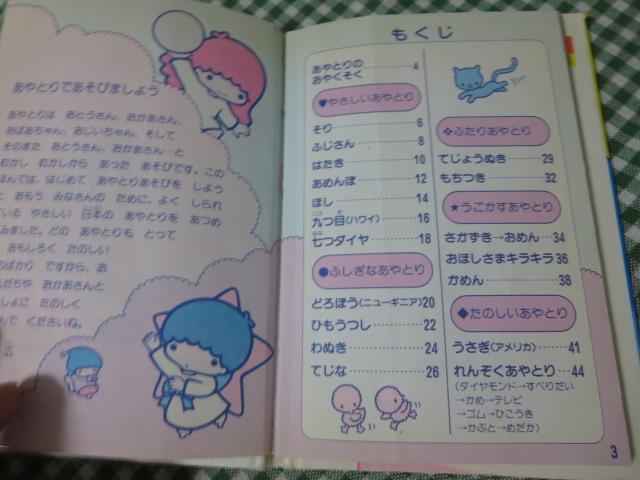 あやとりであそびましょう
あやとりは おとうさん、おかあさん、
おばあちゃん、おじいちゃん、そして
そのまた おとうさん、おかあさん…と
むかし むかしから あった あそびです。この
ほんでは、はじめて あやとりあそびを しよう
と おもう みなさんの ために、よく しられ
ている やさしい 日本の あやとりを あつめ
みました。どの あやとりも とって
おもしろく たのしい
のばかり ですから、お
もだちや おかあさんと
しょに たのしく
んで くださいね。
広
もくじ
あやとりの
おやくそく 4
♥やさしいあやとり
そり 6
ふじさん 8
はたき 10
あめんぼ 12
ほし 14
九つ目(ハワイ) 16
七つダイヤ 18
●ふしぎなあやとり
どろぼう(ニューギニア) 20
ひもうつし 22
わぬき 24
てじな 26
❖ふたりあやとり
てじょうぬき 29
もちつき 32
★うごかすあやとり
さかずき→おめん 34
おほしさまキラキラ 36
かめん 38
◆たのしいあやとり
うさぎ(アメリカ) 41
れんぞくあやとり 44
(ダイヤモンド→すべりだい
→かめ→テレビ
→ゴム→ひこうき
→かぶと→めだか)
3